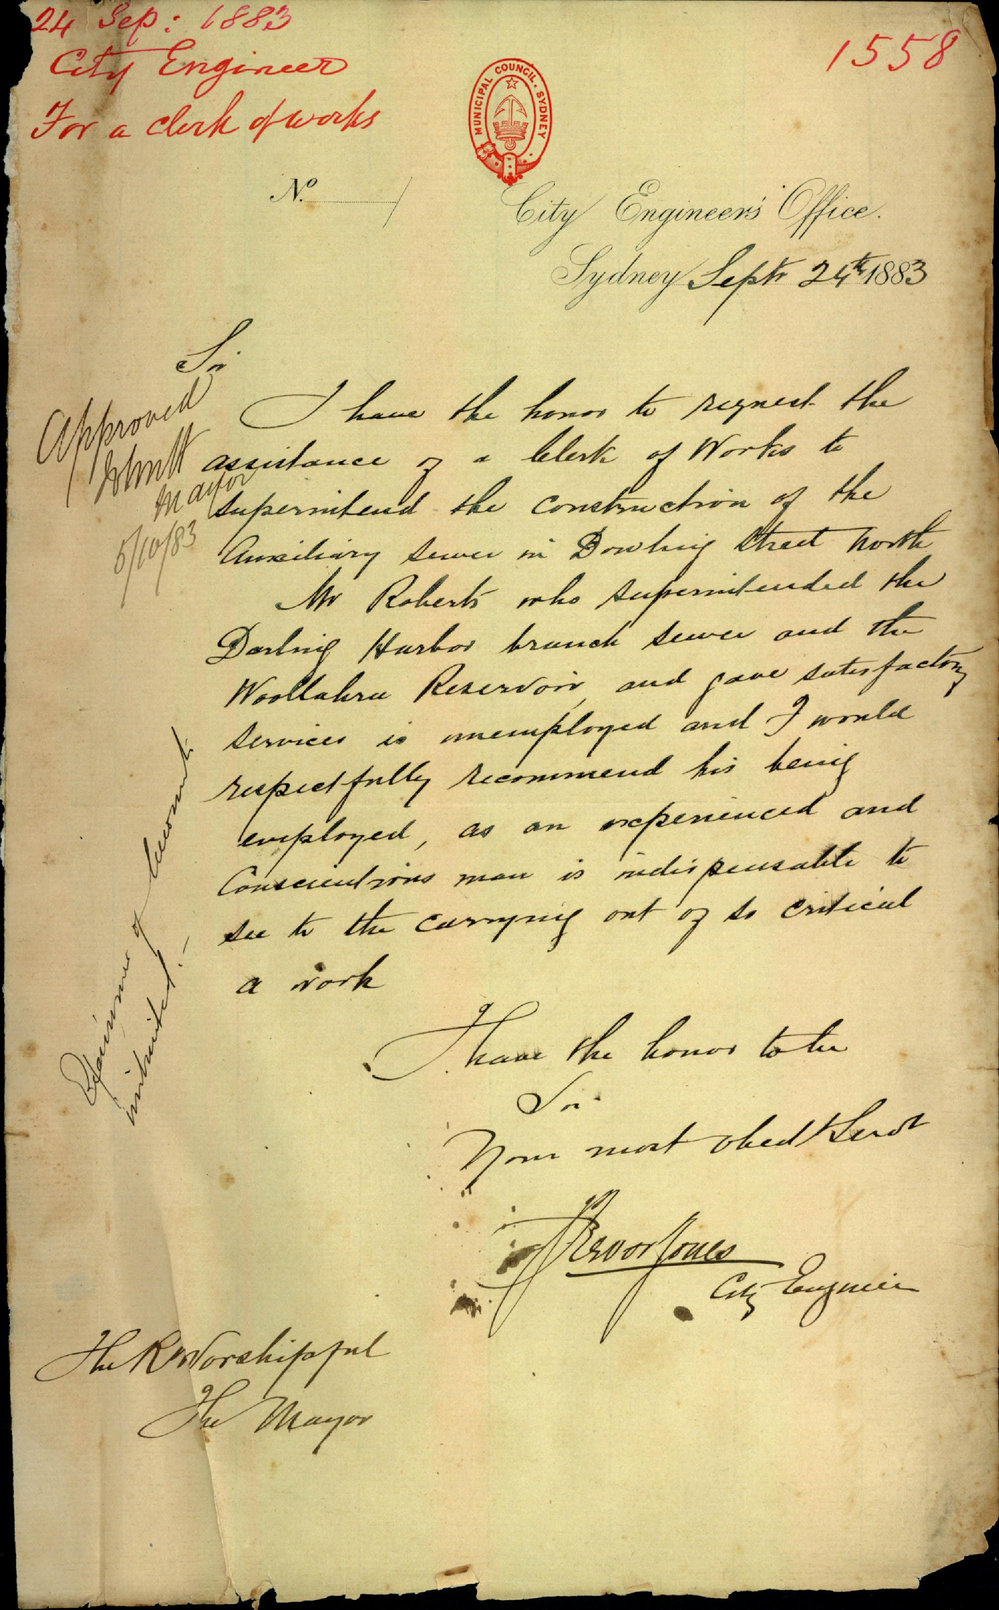 24 Sep: 1883
City Engineer
For a clerk of works
1558
MUNICIPAL COUNCIL. SYDNEY
No.
City Engineer's Office.
Sydney Septr 24th 1883
Sir
I have the honor to request the
assistance of a Clerk of Works to
superintend the construction of the
Auxiliary sewer in Dowling Street North
Mr Roberts who superintended the
Darling Harbor branch sewer and the
Woollahra Reservoir, and gave satisfactory
services is unemployed and I would
respectfully recommend his being
employed, as an experienced and
Conscientious man is indispensable to
see to the carrying out of so critical
a work
I have the honor to be
Sir
Your most obedt Servt
Trevor Jones
City Engineer
The Rt Worshipful
The Mayor
Approved
Mayor
5/10/83
Examiner of Accounts
intimated.-